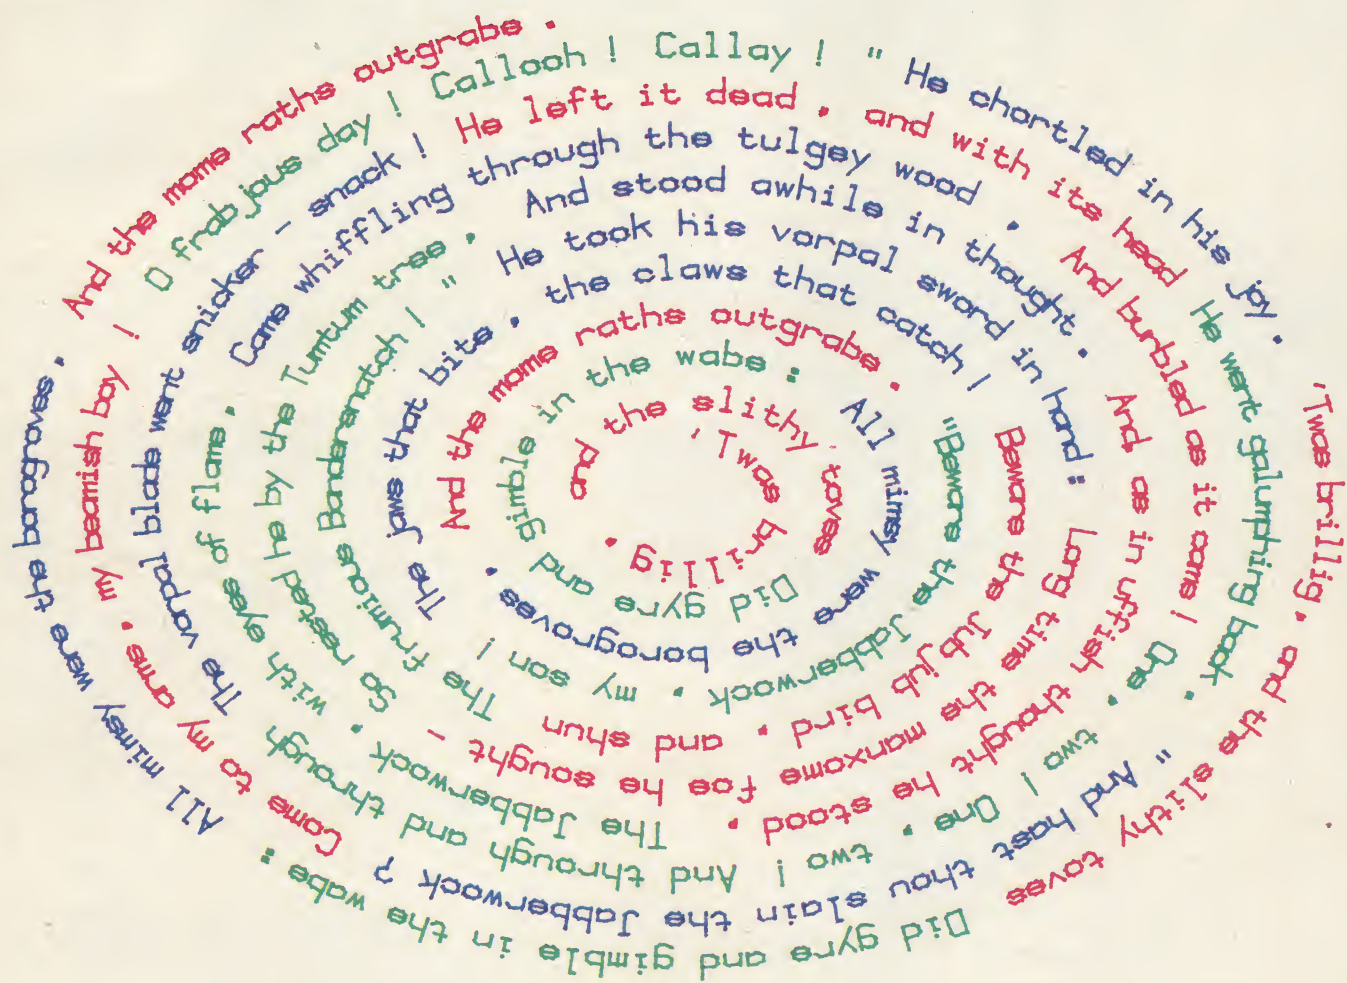 'Twas brillig, and the slithy toves
Did gyre and gimble in the wabe:
All mimsy were the borogroves,
And the mome raths outgrabe.
"Beware the Jabberwock, my son!
The jaws that bite, the claws that catch!
Beware the Jub jub bird, and shun
The frumious Bandersnatch!"
He took his vorpal sword in hand:
Long time the manxome foe he sought -
So rested he by the Tumtum tree,
And stood awhile in thought.
And as in uffish thought he stood,
The Jabberwock, with eyes of flame,
Came whiffling through the tulgey wood,
And burbled as it came!
One, two! One, two! And through and through
The vorpal blade went snicker - snack!
He left it dead, and with its head
He went galumphing back.
"And hast thou slain the Jabberwock?
Come to my arms, my beamish boy!
O frabjous day! Callooh! Callay!"
He chortled in his joy.
'Twas brillig, and the slithy toves
Did gyre and gimble in the wabe:
All mimsy were the borogroves,
And the mome raths outgrabe.